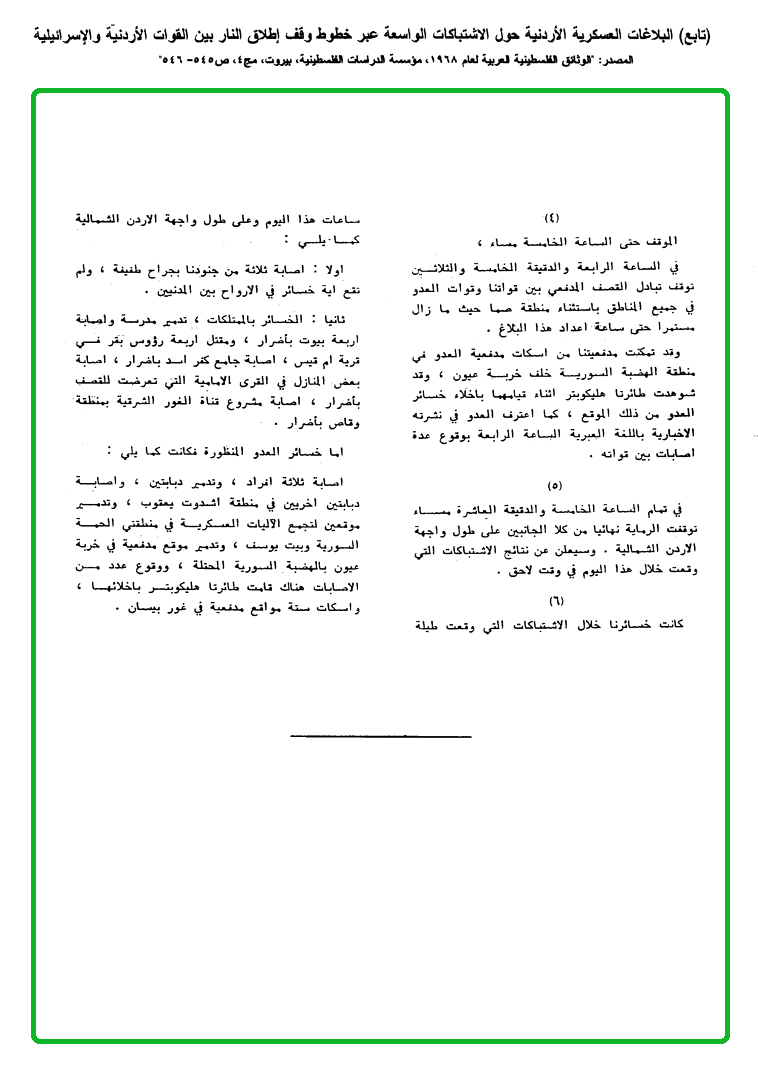 (تابع) البلاغات العسكرية الأردنية حول الاشتباكات الواسعة عبر خطوط وقف إطلاق النار بين القوات الأردنيّة والإسرائيلية
المصدر: "الوثائق الفلسطينية العربية لعام ١٩٦٨، مؤسسة الدراسات الفلسطينية، بيروت، مج ٤، ص ٥٤٥- ٥٤٦"
(٤)
الموقف حتى الساعة الخامسة مساء ،
في الساعة الرابعة والدقيقة الخامسة والثلاثين
توقف تبادل القصف المدفعي بين قواتنا وقوات العدو
في جميع المناطق باستثناء منطقة صما حيث ما زال
مستمرا حتى ساعة اعداد هذا البلاغ .
وقد تمكنت مدفعيتنا من اسكات مدفعية العدو في
منطقة الهضبة السورية خلف خربة عيون ، وقد
شوهدت طائرتا هليكوبتر اثناء قيامهما باخلاء خسائر
العدو من ذلك الموقع ، كما اعترف العدو في نشرته
الاخبارية باللغة العبرية الساعة الرابعة بوقوع عدة
اصابات بين قواته .
(٥)
في تمام الساعة الخامسة والدقيقة العاشرة مساء
توقفت الرماية نهائيا من كلا الجانبين على طول واجهة
الاردن الشمالية . وسيعلن عن نتائج الاشتباكات التي
وقعت خلال هذا اليوم في وقت لاحق .
(٦)
كانت خسائرنا خلال الاشتباكات التي وقعت طيلة
ساعات هذا اليوم وعلى طول واجهة الاردن الشمالية
كما يلي :
اولا : اصابة ثلاثة من جنودنا بجراح طفيفة ، ولم
تقع اية خسائر في الارواح بين المدنيين .
ثانيا : الخسائر بالممتلكات ، تدمير مدرسة واصابة
اربعة بيوت بأضرار ، ومقتل اربعة رؤوس بقر في
قرية ام قيس ، اصابة جامع كفر اسد باضرار ، اصابة
بعض المنازل في القرى الامامية التي تعرضت للقصف
بأضرار ، اصابة مشروع قناة الغور الشرقية بمنطقة
وقاص بأضرار .
اما خسائر العدو المنظورة فكانت كما يلي :
اصابة ثلاثة افراد ، وتدمير دبابتين ، واصابة
دبابتين اخريين في منطقة اشدوت يعقوب ، وتدمير
موقعين لتجمع الآليات العسكرية في منطقتي الحمة
السورية وبيت يوسف ، وتدمير موقع مدفعية في خربة
عيون بالهضبة السورية المحتلة ، ووقوع عدد من
الاصابات هناك قامت طائرتا هليكوبتر باخلائها ،
واسكات ستة مواقع مدفعية في غور بيسان .